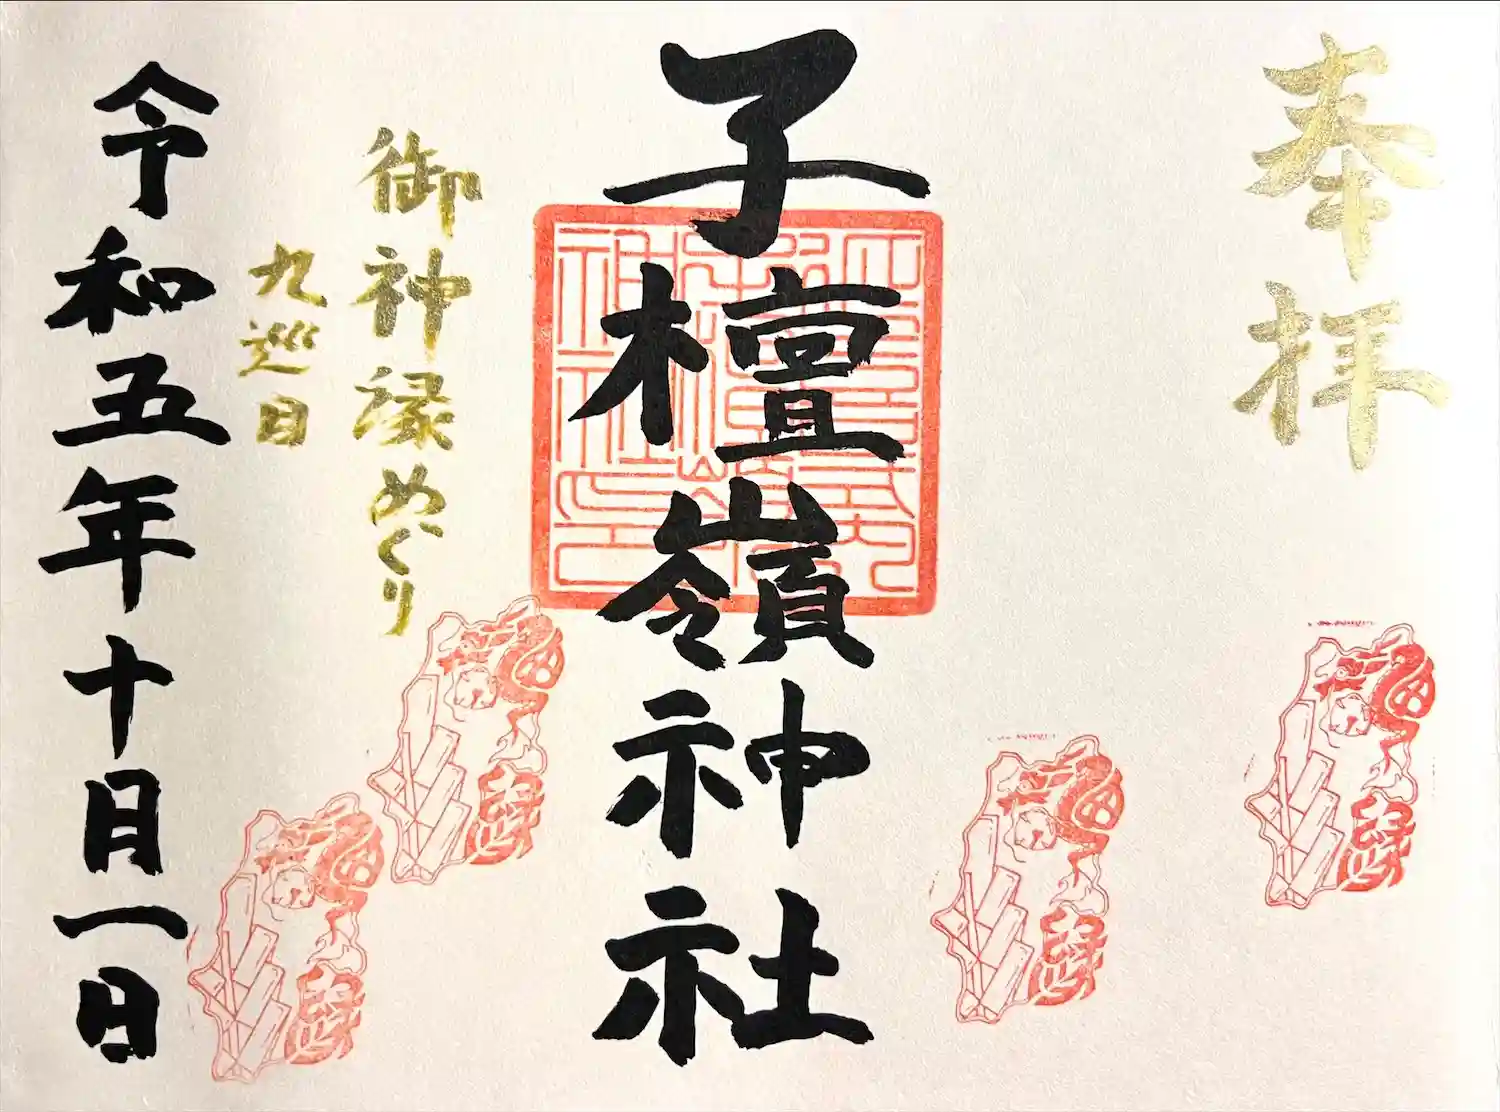 奉拝
子檀嶺神社
御神縁めぐり
九巡目
令和五年十月一日